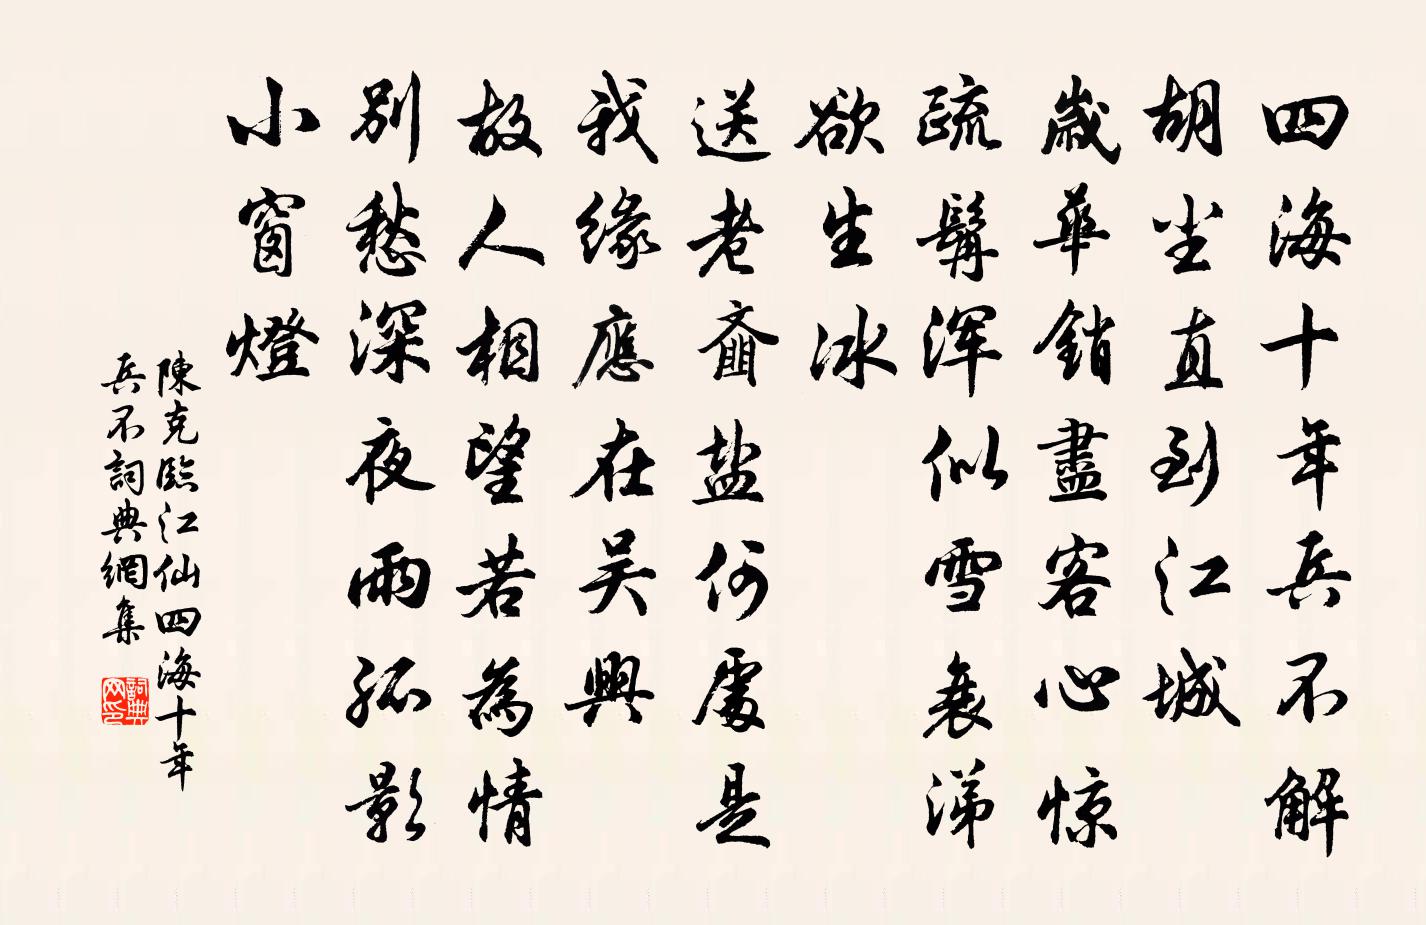 四海十年兵不解
胡尘直到江城
歲華銷盡客心惊
疏髯浑似雪衰涕
欲生冰
送老齑盐何處是
我缘應在吴興
故人相望若為情
别愁深夜雨孤影
小窗燈
陳克臨江仙四海十年
兵不詞典網集
詞典网印